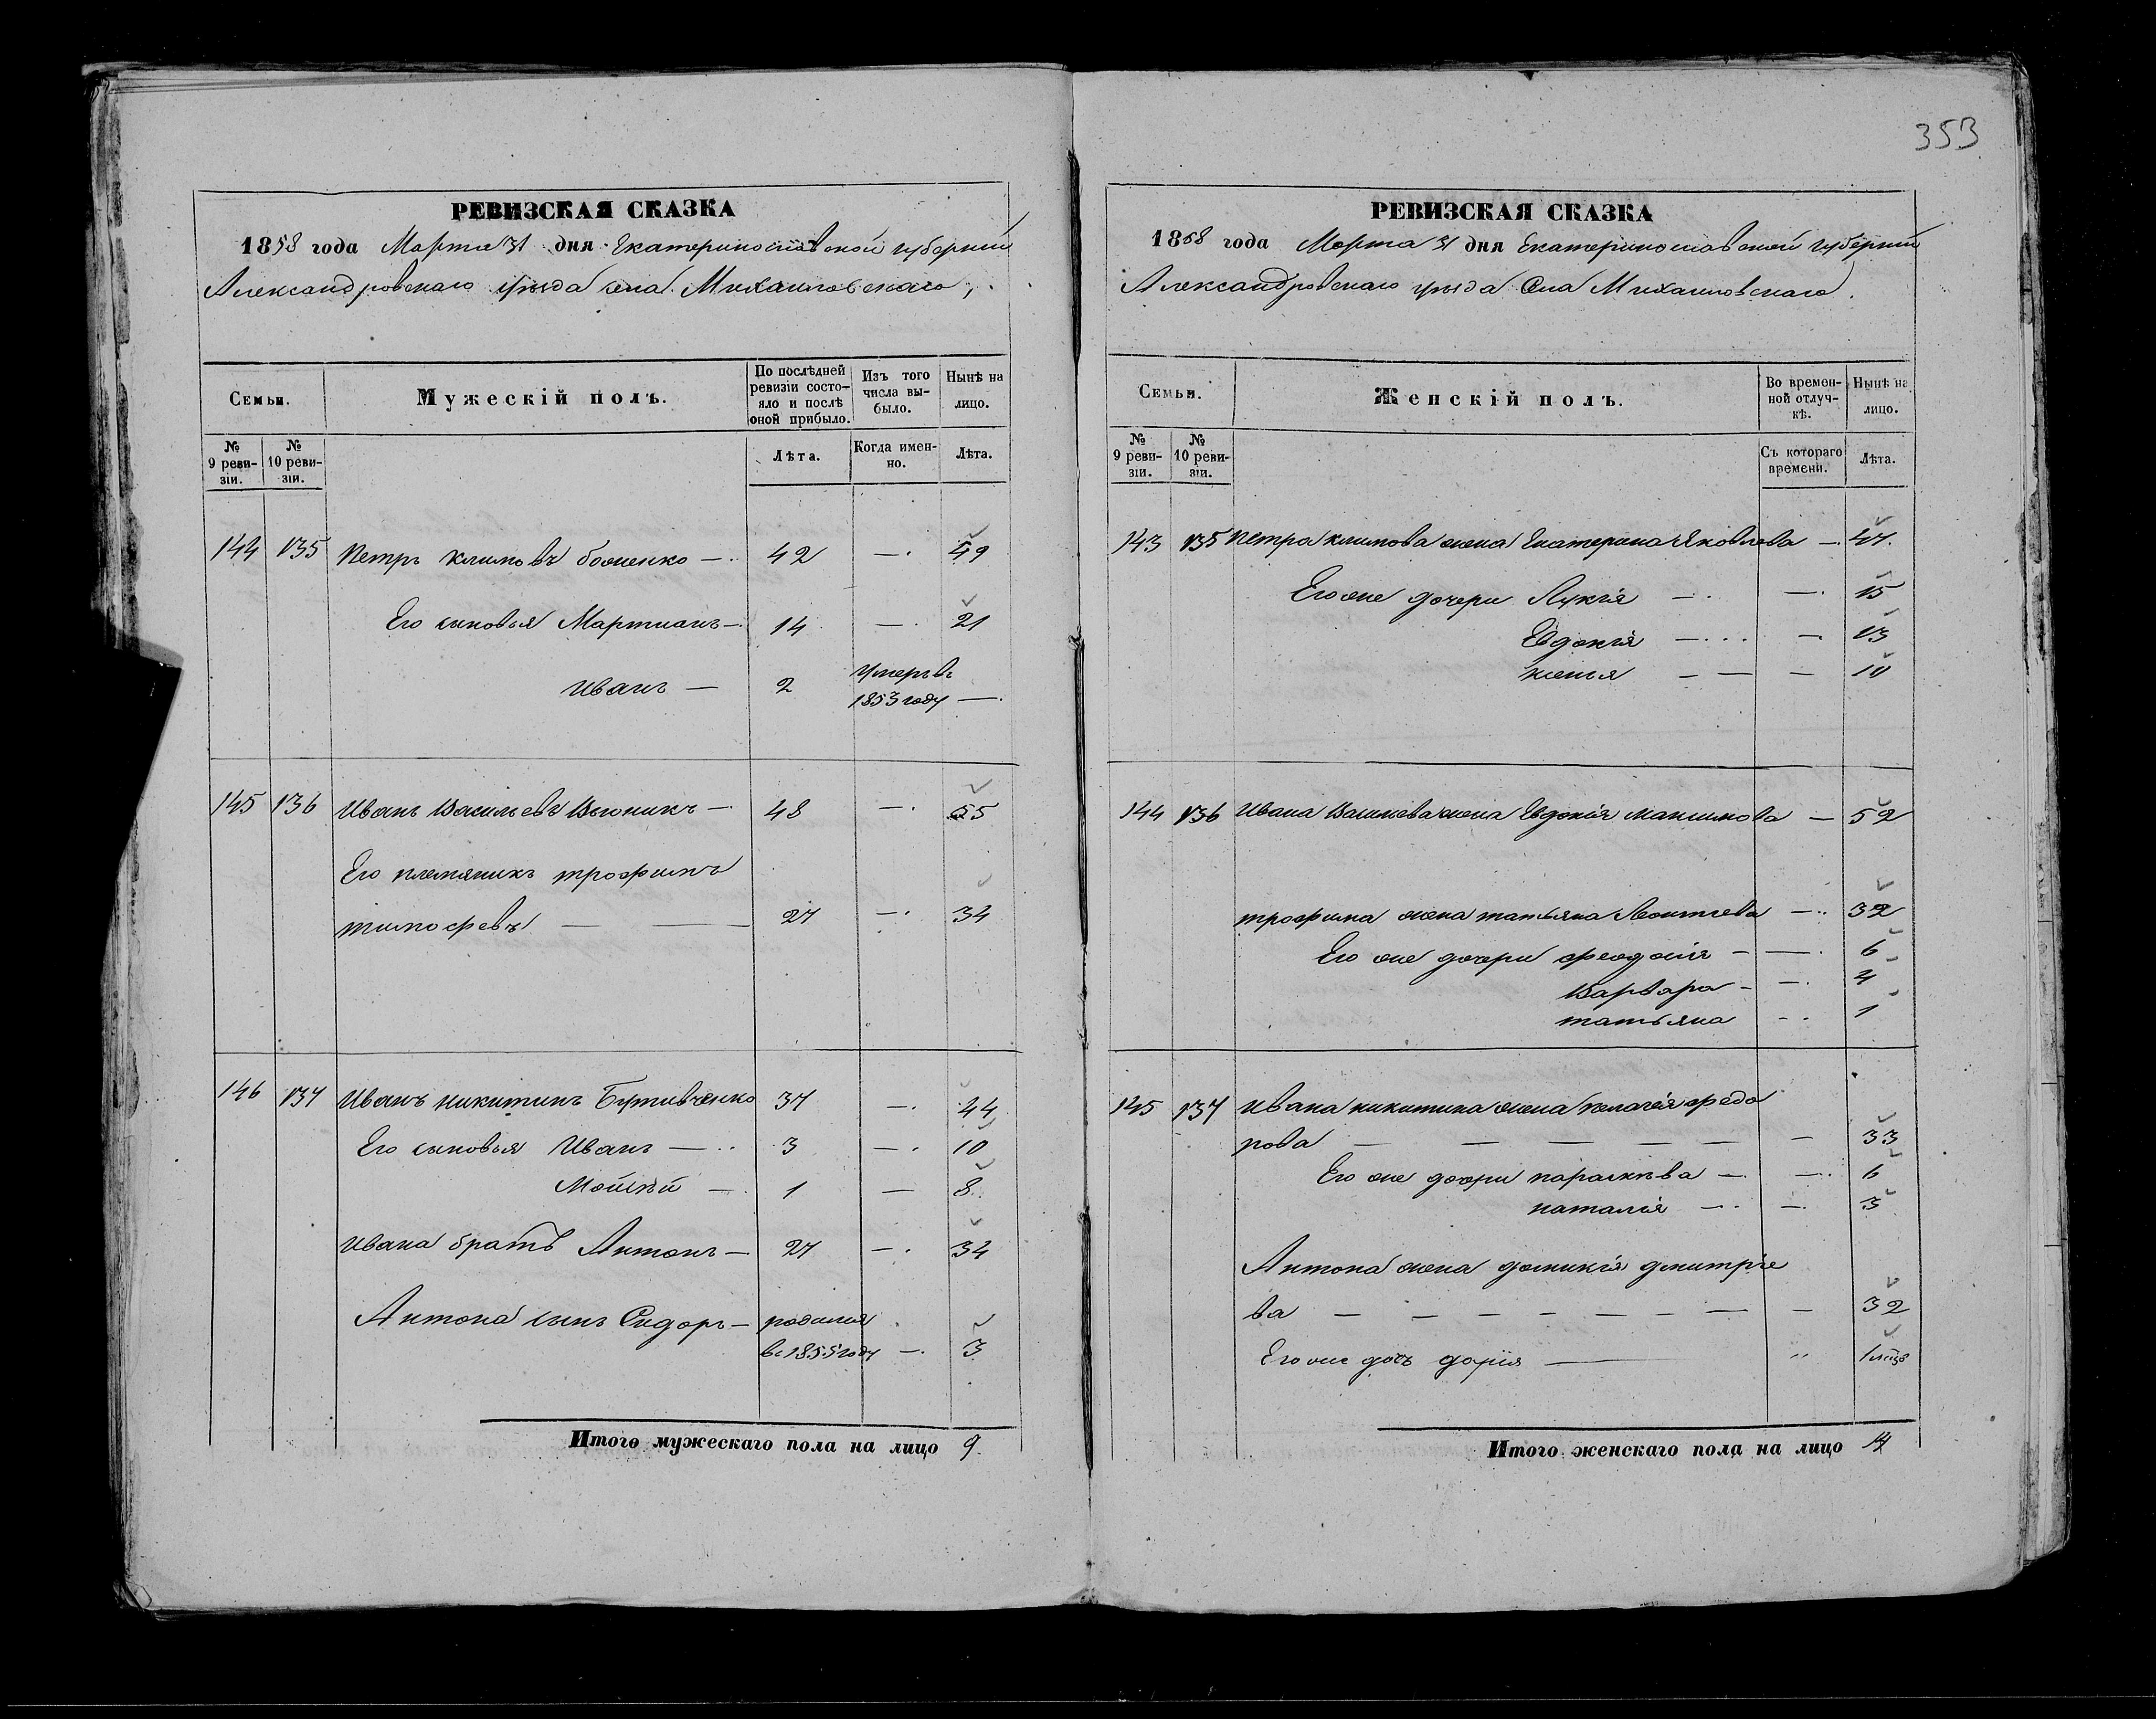 353
РЕВИЗСКАЯ СКАЗКА
1858 года Марта 31 дня Екатеринославской губернии
Александровскаго уѣзда села Михайловскаго,
Семьи.
Мужескій полъ.
По послѣдней ревизіи состояло и послѣ оной прибыло.
Изъ того числа выбыло.
Нынѣ на лицо.
№ 9 ревизіи.
№ 10 ревизіи.
Лѣта.
Когда именно.
Лѣта.
144 135 Петръ Климовъ — 42 — 49
Его сыновья Мартианъ — 14 — 21
Иванъ — 2 умеръ въ
1853 году —
145 136 Иванъ Васильевъ Вьюникъ — 48 — 55
Его племяникъ трофимъ
тимофеевъ — — 27 — 34
146 137 Иванъ никитинъ Бутивченко 37 — 44
Его сыновья Иванъ — 3 — 10
Мойсѣй — 1 — 8
Ивана братъ Антонъ — 27 — 34
Антона сынъ Сидоръ — родился
въ 1855 году — 3
Итого мужескаго пола на лицо 9.
РЕВИЗСКАЯ СКАЗКА
1858 года Марта 31 дня Екатеринославской губернии
Александровскаго уѣзда Села Михайловскаго.
Семьи.
Женскій полъ.
Во временной отлучкѣ.
Нынѣ на лицо.
№ 9 ревизіи.
№ 10 ревизіи.
Съ котораго времени.
Лѣта.
143 135 Петра климова жена Екатерина Яковлева — 47.
Его же дочери Лукія — — 15
Евдокія — — 13
— — — 10
144 136 Ивана Васильева жена Евдокія максимова — 52
трофима жена татьяна Леонтьева — 32
Его же дочери феодосія — — 6
Варвара — — 4
татьяна — 1
145 137 Ивана никитина жена пелагея федо
рова — — — — — — 33
Его же дочери параскѣва — — 6
наталія — — 3
Антона жена домникія дмитріе
ва — — — — — — — — 32
Его же дочь дарія — " 1 мѣсяц
Итого женскаго пола на лицо 14